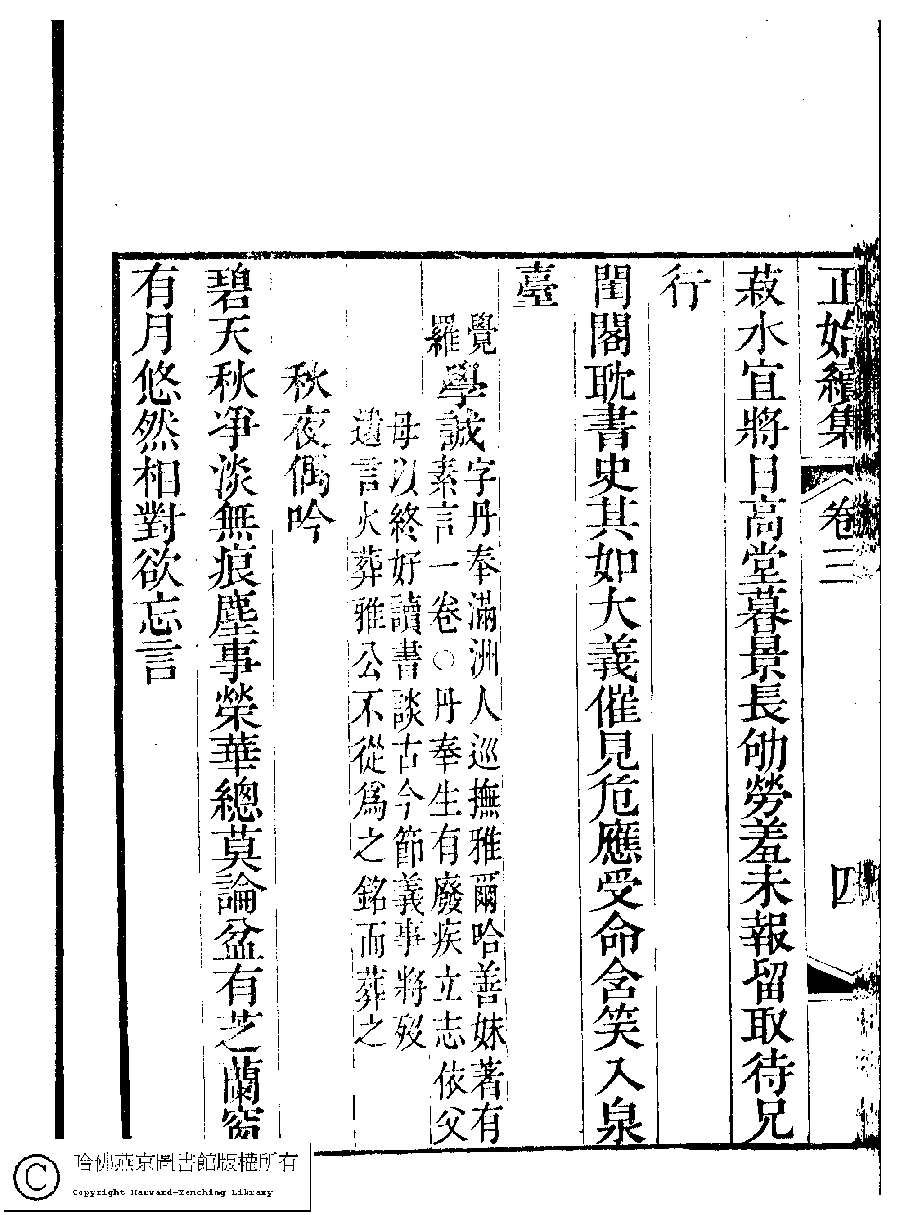 正始續集 卷三 四
菽水宜將日高堂暮景長劬勞羞未報留取待兄
行
閨閤耽書史其如大義催見危應受命含笑入泉
臺
覺羅學誠字丹奉滿洲人巡撫雅爾哈善妹著有
素言一卷○丹奉生有廢疾立志依父
母以終好讀書談古今節義事將歿
遺言火葬雅公不從爲之銘而葬之
秋夜偶吟
碧天秋凈淡無痕塵事榮華總莫論盆有芝蘭窗
有月悠然相對欲忘言
哈佛燕京圖書館版權所有
Copyright Harvard-Yenching Library